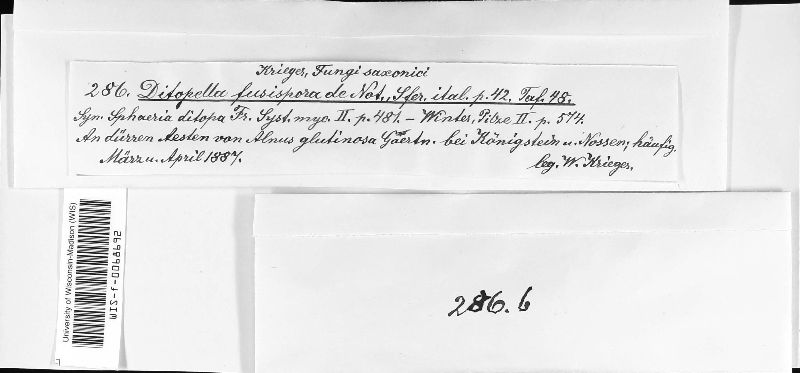 Krieger, Fungi saxonici
286. Ditopella fusispora de Not., Sfer. ital. p. 42. Taf. 48.
Syn. Sphaeria ditopa Fr. Syst. myc. II. p. 481. – Winter, Pilze II. p. 574.
An dürren Aesten von Alnus glutinosa Gaertn. bei Königstein u. Nossen; häufig.
März u. April 1887.
leg. W. Krieger.
University of Wisconsin-Madison (WIS)
WIS-f-0068692
286. b